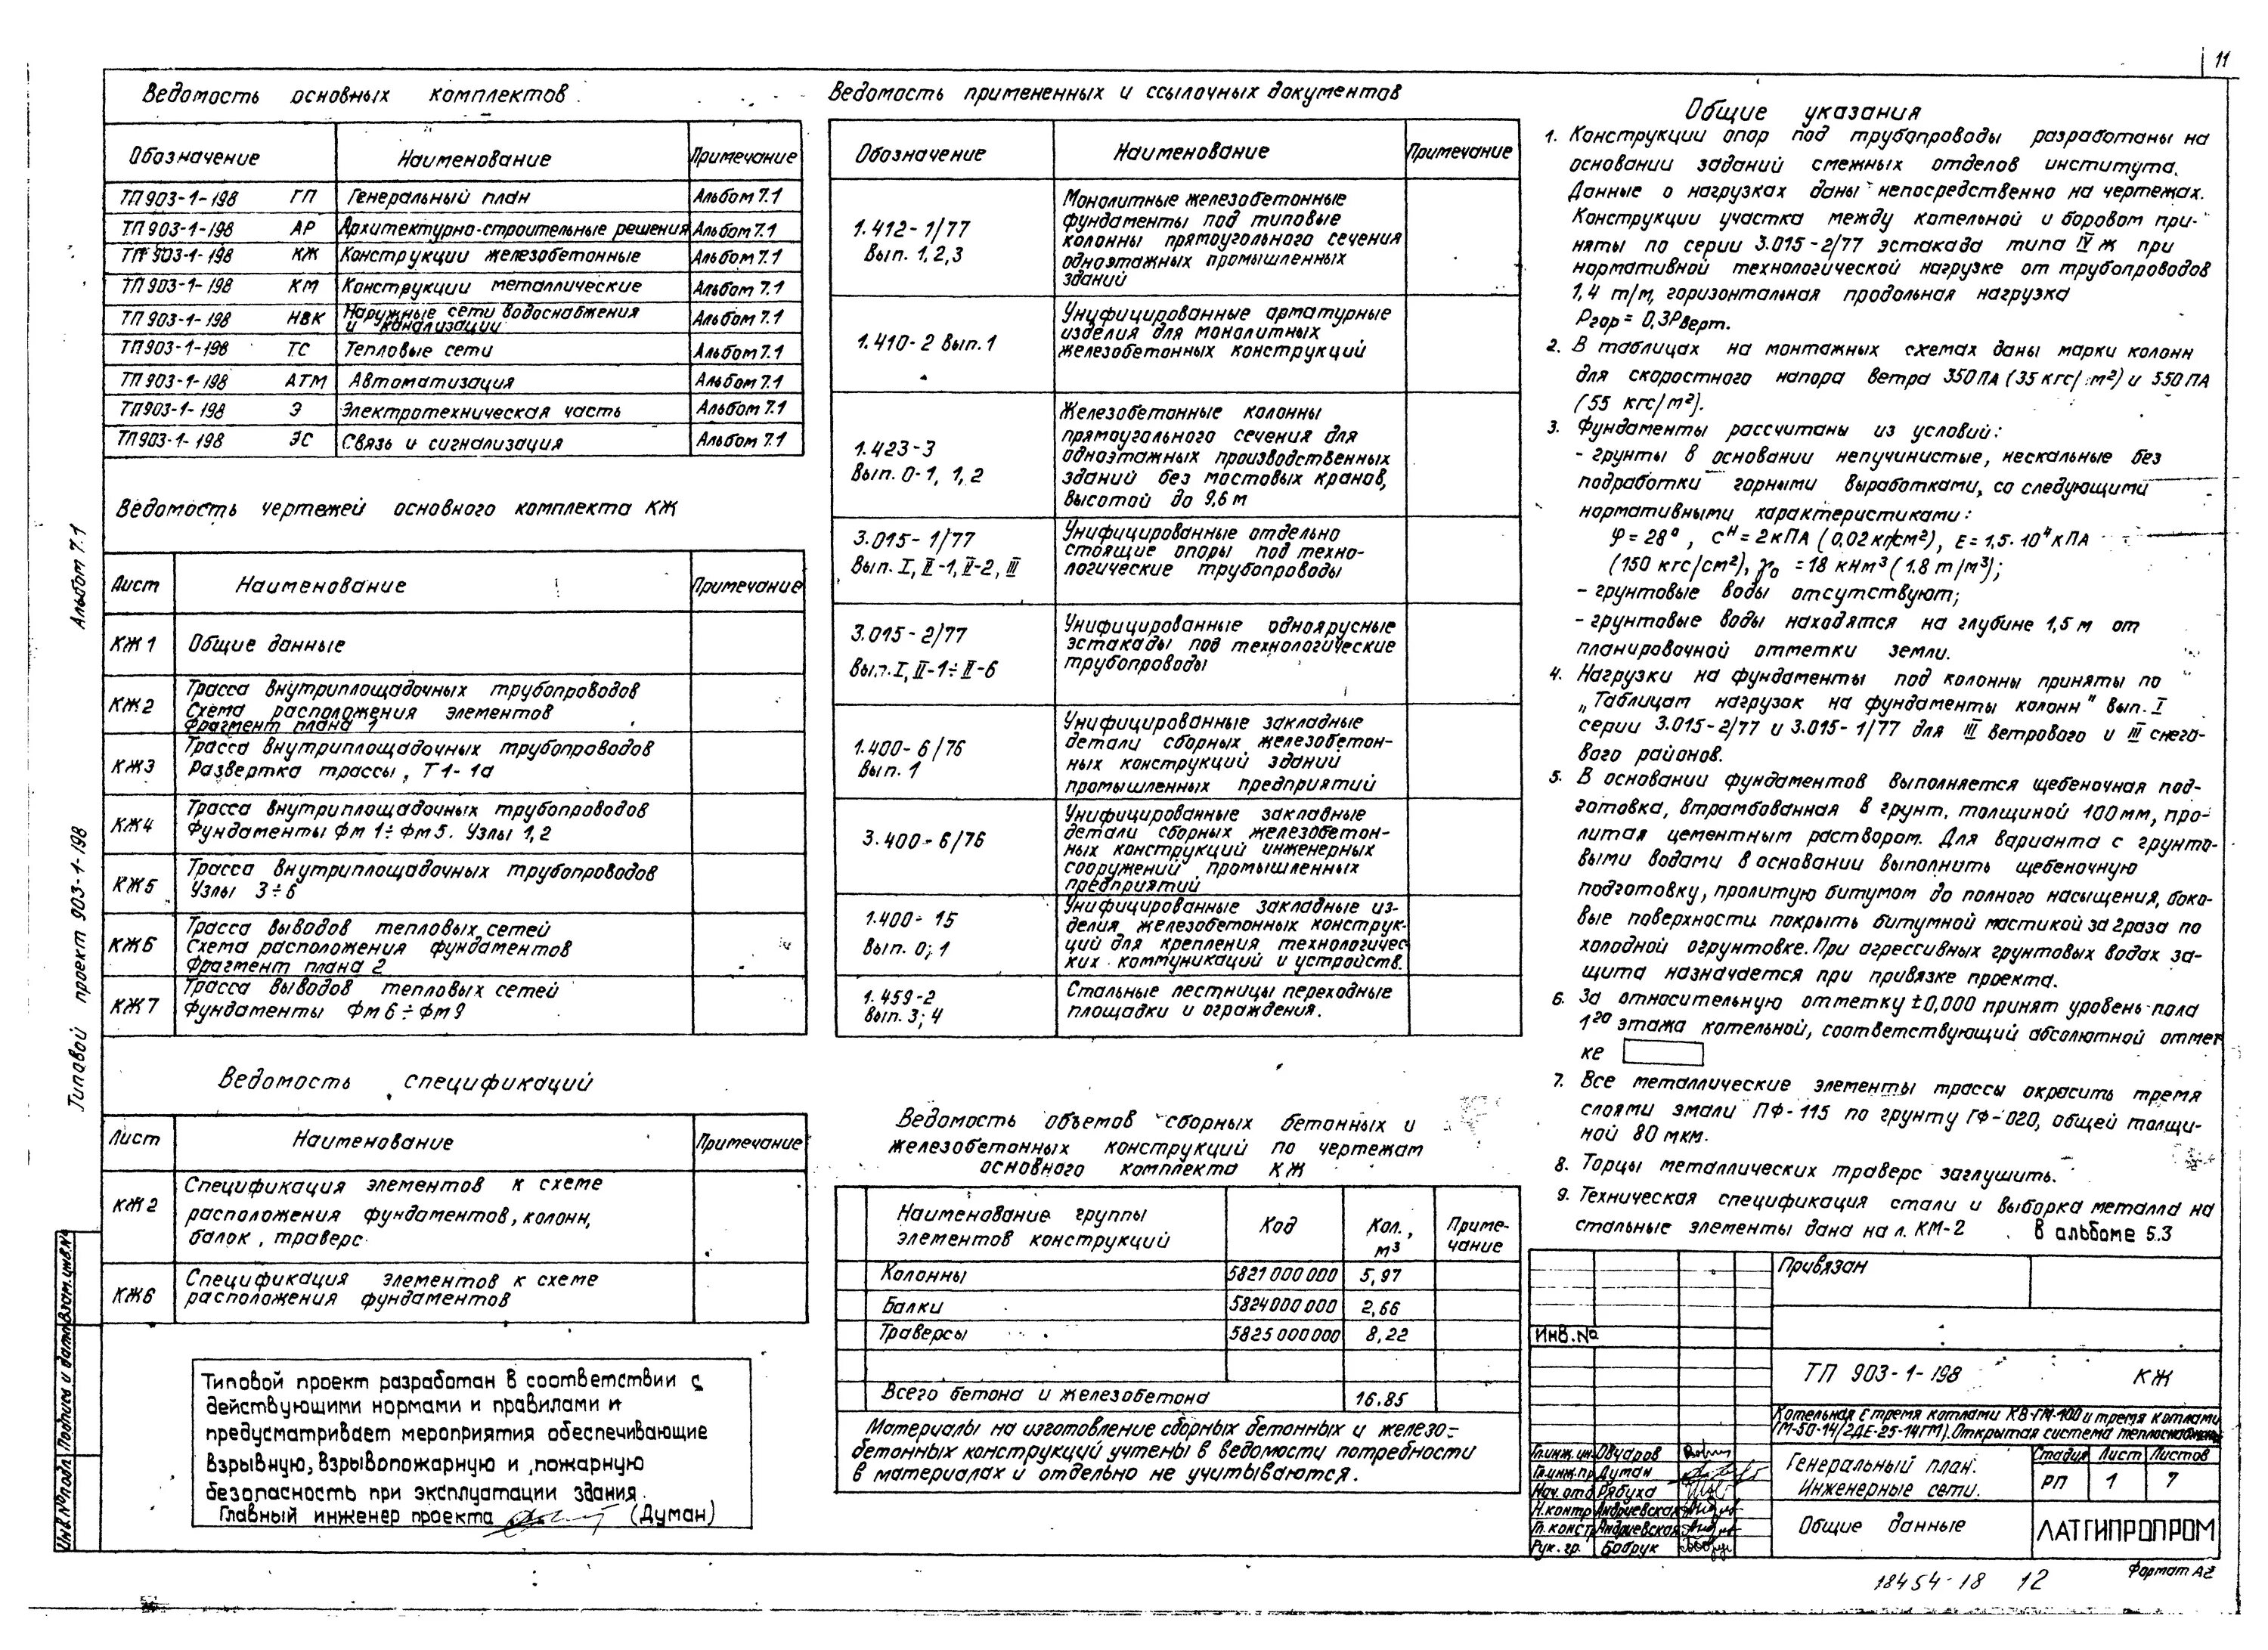 11
Ведомость основных комплектов
Обозначение Наименование Примечание
ТП 903-1-198 ГП Генеральный план Альбом 7.1
ТП 903-1-198 АР Архитектурно-строительные решения Альбом 7.1
ТП 903-1-198 КЖ Конструкции железобетонные Альбом 7.1
ТП 903-1-198 КМ Конструкции металлические Альбом 7.1
ТП 903-1-198 НВК Наружные сети водоснабжения
и канализации Альбом 7.1
ТП 903-1-198 ТС Тепловые сети Альбом 7.1
ТП 903-1-198 АТМ Автоматизация Альбом 7.1
ТП 903-1-198 Э Электротехническая часть Альбом 7.1
ТП 903-1-198 ЭС Связь и сигнализация Альбом 7.1
Ведомость чертежей основного комплекта КЖ
Лист Наименование Примечание
КЖ1 Общие данные
КЖ2 Трасса внутриплощадочных трубопроводов
Схема расположения элементов
Фрагмент плана 1
КЖ3 Трасса внутриплощадочных трубопроводов
Развертка трассы, Т1-1а
КЖ4 Трасса внутриплощадочных трубопроводов
Фундаменты Фм 1÷Фм 5. Узлы 1,2
КЖ5 Трасса внутриплощадочных трубопроводов
Узлы 3÷6
КЖ6 Трасса выводов тепловых сетей
Схема расположения фундаментов
Фрагмент плана 2
КЖ7 Трасса выводов тепловых сетей
Фундаменты Фм 6÷Фм 9
Ведомость спецификаций
Лист Наименование Примечание
КЖ2 Спецификация элементов к схеме
расположения фундаментов, колонн,
балок, траверс
КЖ6 Спецификация элементов к схеме
расположения фундаментов
Типовой проект разработан в соответствии с
действующими нормами и правилами и
предусматривает мероприятия обеспечивающие
взрывную, взрывопожарную и пожарную
безопасность при эксплуатации здания.
Главный инженер проекта (Думан)
Альбом 7.1
Типовой проект 903-1-198
Инв.№подл. Подпись и дата Взам.инв.№
Ведомость примененных и ссылочных документов
Обозначение Наименование Примечание
1.412-1/77
Вып. 1,2,3
Монолитные железобетонные
фундаменты под типовые
колонны прямоугольного сечения
одноэтажных промышленных
зданий
1.410-2 Вып.1
Унифицированные арматурные
изделия для монолитных
железобетонных конструкций
1.423-3
Вып. 0-1, 1,2
Железобетонные колонны
прямоугольного сечения для
одноэтажных производственных
зданий без мостовых кранов,
высотой до 9,6 м
3.015-1/77
Вып. I, II-1, II-2, III
Унифицированные отдельно
стоящие опоры под техно-
логические трубопроводы
3.015-2/77
Вып. I, II-1÷II-6
Унифицированные одноярусные
эстакады под технологические
трубопроводы
1.400-6/76
Вып. 1
Унифицированные закладные
детали сборных железобетон-
ных конструкций зданий
промышленных предприятий
3.400-6/76
Унифицированные закладные
детали сборных железобетон-
ных конструкций инженерных
сооружений промышленных
предприятий
1.400-15
Вып. 0; 1
Унифицированные закладные из-
делия железобетонных конструк-
ций для крепления технологичес
ких коммуникаций и устройств.
1.459-2
Вып. 3; 4
Стальные лестницы переходные
площадки и ограждения.
Ведомость объемов сборных бетонных и
железобетонных конструкций по чертежам
основного комплекта КЖ
Наименование группы
элементов конструкций
Код
Кол.,
м³
Приме-
чание
Колонны 5821000000 5,97
Балки 5824000000 2,66
Траверсы 5825000000 8,22
Всего бетона и железобетона 16.85
Материалы на изготовление сборных бетонных и железо-
бетонных конструкций учтены в ведомости потребности
в материалах и отдельно не учитываются.
Общие указания
1. Конструкции опор под трубопроводы разработаны на
основании заданий смежных отделов института.
Данные о нагрузках даны непосредственно на чертежах.
Конструкции участка между котельной и боровом при-
няты по серии 3.015-2/77 эстакада типа IV ж при
нормативной технологической нагрузке от трубопроводов
1,4 т/м, горизонтальная продольная нагрузка
Pгор = 0,3Pверт.
2. В таблицах на монтажных схемах даны марки колонн
для скоростного напора ветра 350 ПА (35 кгс/м²) и 550 ПА
(55 кгс/м²).
3. Фундаменты рассчитаны из условий:
- грунты в основании непучинистые, нескальные без
подработки горными выработками, со следующими
нормативными характеристиками:
φ = 28°, cн = 2 кПА (0,02 кг/см²), E = 1,5·10⁴ кПА
(150 кгс/см²), γ₀ = 18 кНм³ (1.8 т/м³);
- грунтовые воды отсутствуют;
- грунтовые воды находятся на глубине 1,5 м от
планировочной отметки земли.
4. Нагрузки на фундаменты под колонны приняты по
„Таблицам нагрузок на фундаменты колонн" вып. I
серии 3.015-2/77 и 3.015-1/77 для III ветрового и III снего-
вого районов.
5. В основании фундаментов выполняется щебеночная под-
готовка, втрамбованная в грунт, толщиной 100 мм, про-
литая цементным раствором. Для варианта с грунто-
выми водами в основании выполнить щебеночную
подготовку, пролитую битумом до полного насыщения, боко-
вые поверхности покрыть битумной мастикой за 2 раза по
холодной огрунтовке. При агрессивных грунтовых водах за-
щита назначается при привязке проекта.
6. За относительную отметку ±0,000 принят уровень пола
1го этажа котельной, соответствующий абсолютной отмет
ке
7. Все металлические элементы трассы окрасить тремя
слоями эмали ПФ-115 по грунту ГФ-020, общей толщи-
ной 80 мкм.
8. Торцы металлических траверс заглушить.
9. Техническая спецификация стали и выборка металла на
стальные элементы дана на л. КМ-2 в альбоме 5.3
Привязан
Инв.№
ТП 903-1-198 КЖ
Котельная с тремя котлами КВ-ГМ-100 и тремя котлами
ГМ-50-14/2ДЕ-25-14ГМ). Открытая система теплоснабжения
Гл.инж.ин. Овчаров
Гл.инж.пр Думан
Нач.отд Рябуха
Н.контр Андриевская
Гл.констр Андриевская
Рук.гр. Бобрук
Генеральный план.
Инженерные сети.
Стадия Лист Листов
РП 1 7
Общие данные
ЛАТГИПРОПРОМ
Формат А2
18454-18 12